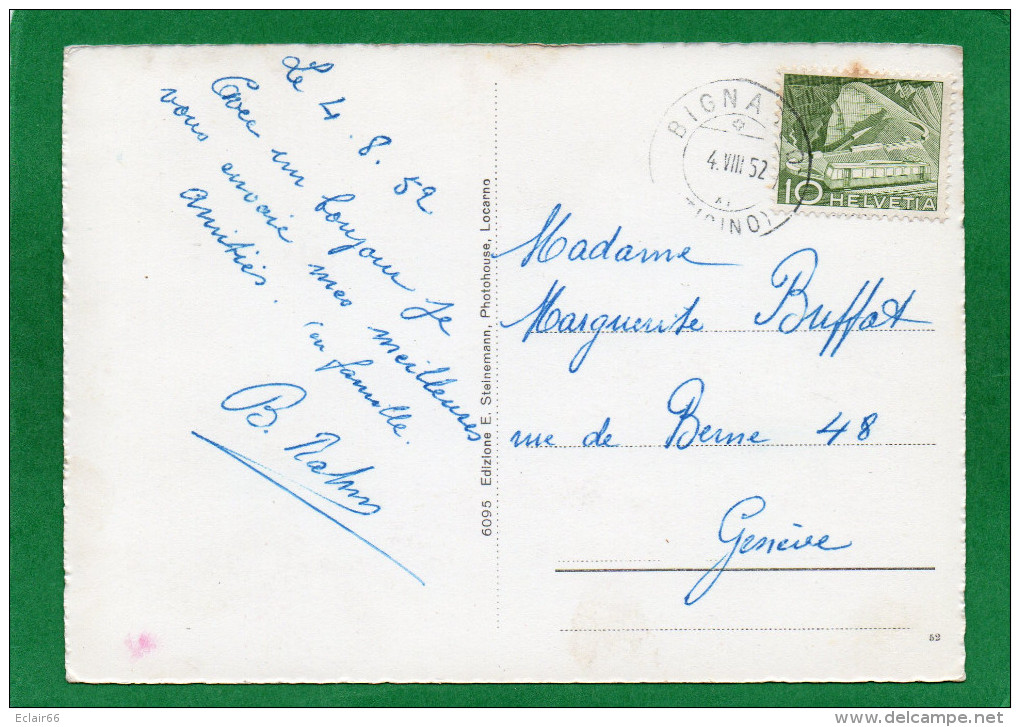 Le 4.8.52
Avec un bonjour je
vous envoie mes meilleures
amitiés.
(en famille.
B. Rahm
6095 Edizione E. Steinemann, Photohouse, Locarno
BIGNA
4.VIII 52
(TICINO)
10 HELVETIA
Madame
Marguerite Buffat
rue de Berne 48
Genève
52
Eclair66
http://www.delcampe.net